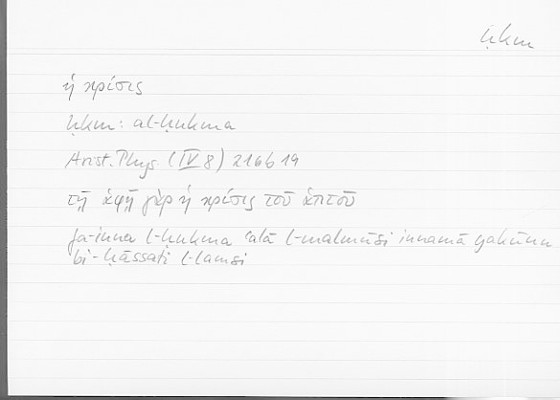 ḥkm
ἡ κρίσις
ḥkm: al-ḥukma
Arist. Phys. (IV 8) 216b19
τῇ ἁφῇ γὰρ ἡ κρίσις τοῦ ἁπτοῦ
fa-inna l-ḥukma ʿalā l-malmūsi innamā yakūnu
bi-ḥāssati l-lamsi